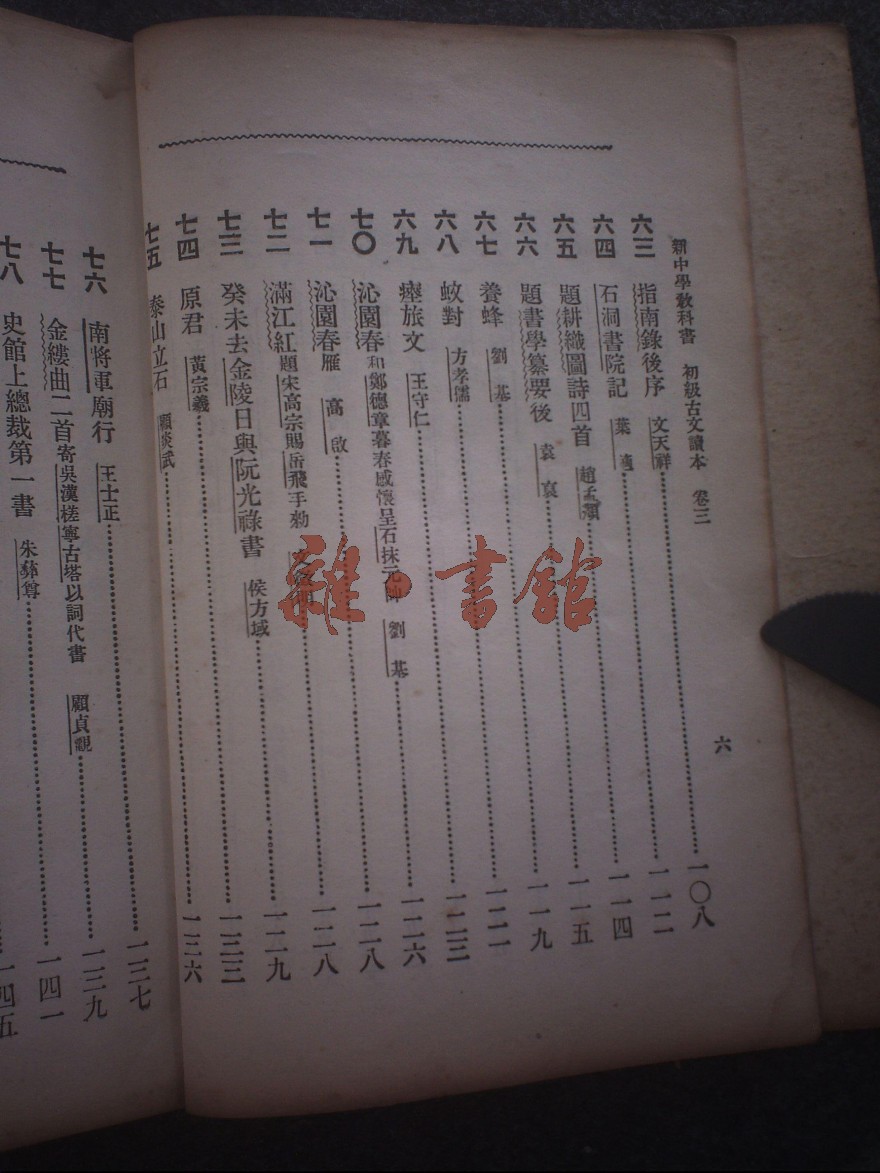 新中學教科書 初級古文讀本 卷三 六
六三 指南錄後序 文天祥 一〇八
六四 石洞書院記 葉適 一一二
六五 題耕織圖詩四首 趙孟頫 一一四
六六 題書學纂要後 袁裒 一一五
六七 養蜂 劉基 一一九
六八 蚊對 方孝孺 一二一
六九 瘞旅文 王守仁 一二三
七〇 沁園春和鄭德章暮春感懷呈石抹元帥 劉基 一二六
七一 沁園春雁 高啟 一二八
七二 滿江紅題宋高宗賜岳飛手勅 一二八
七三 癸未去金陵日與阮光祿書 侯方域 一二九
七四 原君 黃宗羲 一三三
七五 泰山立石 顧炎武 一三六
七六 南將軍廟行 王士正 一三七
七七 金縷曲二首寄吳漢槎寧古塔以詞代書 顧貞觀 一三九
七八 史館上總裁第一書 朱彝尊 一四一
一四五
雜·書館